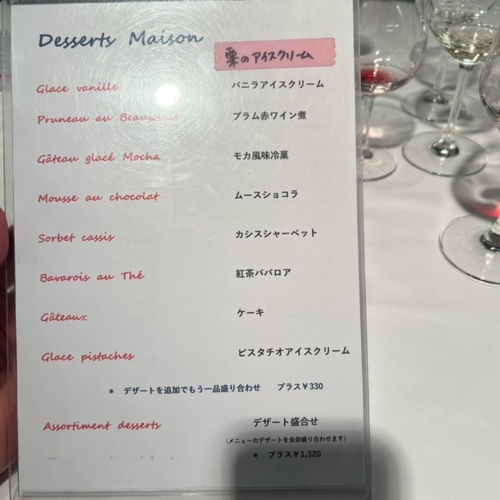 Desserts Maison
栗のアイスクリーム
Glace vanille バニラアイスクリーム
Pruneau au プラム赤ワイン煮
Gâteau glacé Mocha モカ風味冷菓
Mousse au chocolat ムースショコラ
Sorbet cassis カシスシャーベット
Bavarois au Thé 紅茶ババロア
Gâteaux ケーキ
Glace pistaches ピスタチオアイスクリーム
* デザートを追加でもう一品盛り合わせ プラス¥330
Assortiment desserts デザート盛合せ
(メニューのデザートを全部盛り合わせます)
* プラス¥1,320